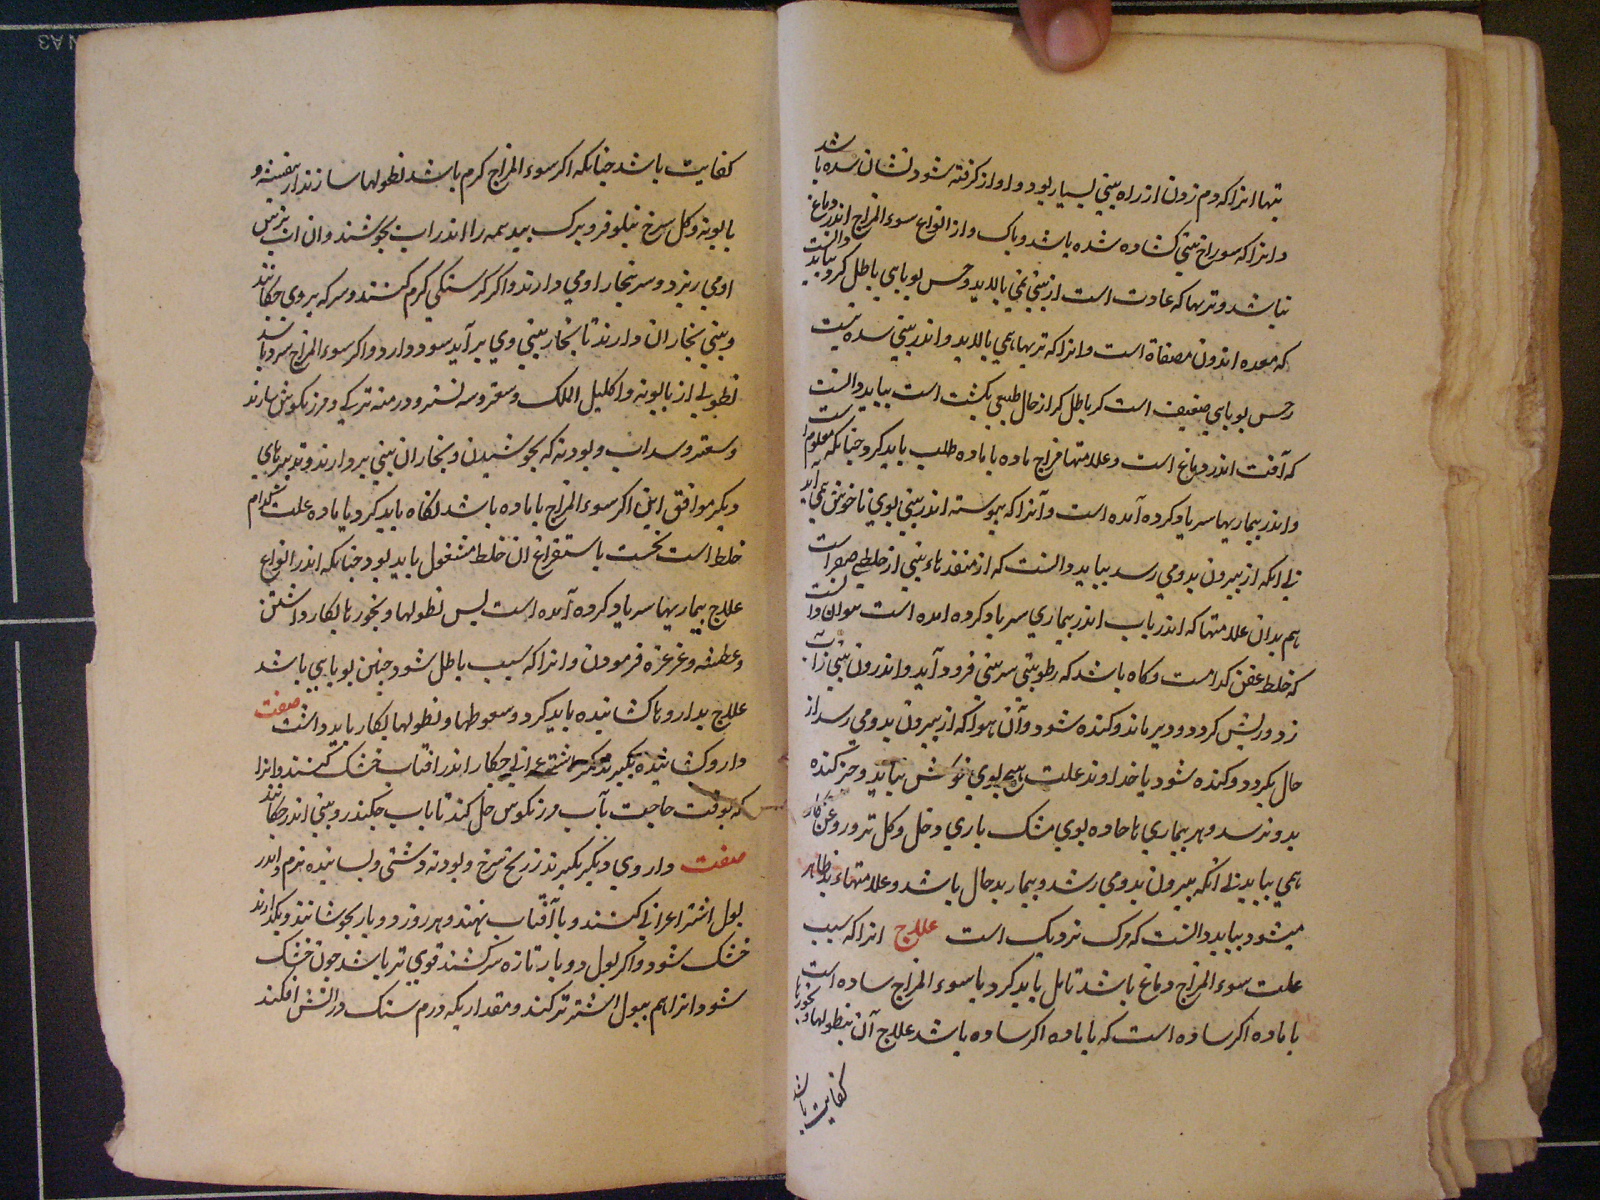 تبها انرا که دم زدن از راه بیني بسیار بود و اواز کرفته شود نشان سده باشد
و انرا که سوراخ بیني کشاده شده باشد و پاک و از انواع سوء المزاج اندر دماغ
نباشد و تریها که عادت است از بیني نمي پالاید و حس بویایي باطل کردد بباید دانست
که سده اندرون مصفاة است و انرا که تریها همي پالاید و اندر بیني سده نیست
و حس بویایي ضعیف است کر باطل کر از حال طبیعي بکشت است بباید دانست
که آفت اندر دماغ است و علامتها مزاج ماده با ماده طلب باید کرد چنانکه معلوم است
و اندر بیماریها سر یاد کرده آمده است و آنرا که پیوسته اندر بیني بوي ناخوش همي آید
بي انکه از بیرون بدو مي رسد بباید دانست که از منفذهاء بیني از خلطي است
هم بدان علامتها که اندر باب اندر بیماري سر یاد کرده امده است توان دانست
که خلط عفن کدامست و کاه باشد که رطوبتي سر بیني فرود آید و اندرون بیني
زود ریش کردد و دیر ماند و کنده شود و آن هوا که از بیرون بدو مي رسد از
حال بکردد و کنده شود یا خداوند علت هیچ بوي خوش نیابد و جز کنده
بدو نرسد و هر بیماري با حاده بوي مشک باري و خل و کل تر و روغن کاو
همي بیابد بي انکه بیرون بدو مي رسد و بیمار بدحال باشد و علامتهاء بد ظاهر
میشود بباید دانست که مرک نزدیک است علاج انرا که سبب
علت سوء المزاج دماغ باشد تامل باید کرد یا سوء المزاج ساده است
یا با ماده اکر ساده است که با ماده اکر ساده باشد علاج آن بنطولها و بخورها
کفایت باشد
کفایت باشد چنانکه اکر سوء المزاج کرم باشد نطولها سازند از بنفشه و
بابونه و کل سرخ نیلوفر و برک بید همه را اندر اب بجوشند و ان اب برپیش
او مي ریزد و سر بخار او مي دارند و اکر سنکي کرم کنند و سرکه بر وي چکانند
و بیني بخار ان دارند تا بخار ببیني وي بر آید سود دارد و اکر سوء المزاج سرد باشد
نطولي از بابونه و اکلیل الملک و سعتر و درمنه ترکي و مرزنکوش سازند
و سعتر و سداب و پودنه که بجوشیدن و بخار ان بیني بر دارند و تدبیرهاي
دیکر موافق این اکر سوء المزاج با ماده باشد نکاه باید کرد با ماده علت کدام
خلط است نخست باستفراغ ان خلط مشغول باید بود چنانکه اندر انواع
علاج بیماریها سر یاد کرده آمده است پس نطولها و بخورها بکار داشتن
و عطسه و غرغره فرمودن و انرا که سبب باطل شود چنین بویایي باشد
علاج بداروها کشاینده باید کرد و سعوطها و نطولها بکار باید داشت صفت
دارو کشاینده بکیرند اندر افتاب خشک کنند و انرا
که بوقت حاجت بآب مرزنکوش حل کند تا باب چکندر و بیني اندر چکانند
صفت داروي دیکر بکیرند زرنیخ سرخ و پودنه دشتي و بسایند نرم و اندر
بول اشتر اعرابي کنند و با آفتاب نهند و هر روز دو بار بجوشانند و بکذارند
خشک شود و اکر بول دو بار تازه سر کشند قوي تر باشد چون خشک
شود انرا هم ببول اشتر تر کند و مقدار یکدرم سنک در آتش افکند